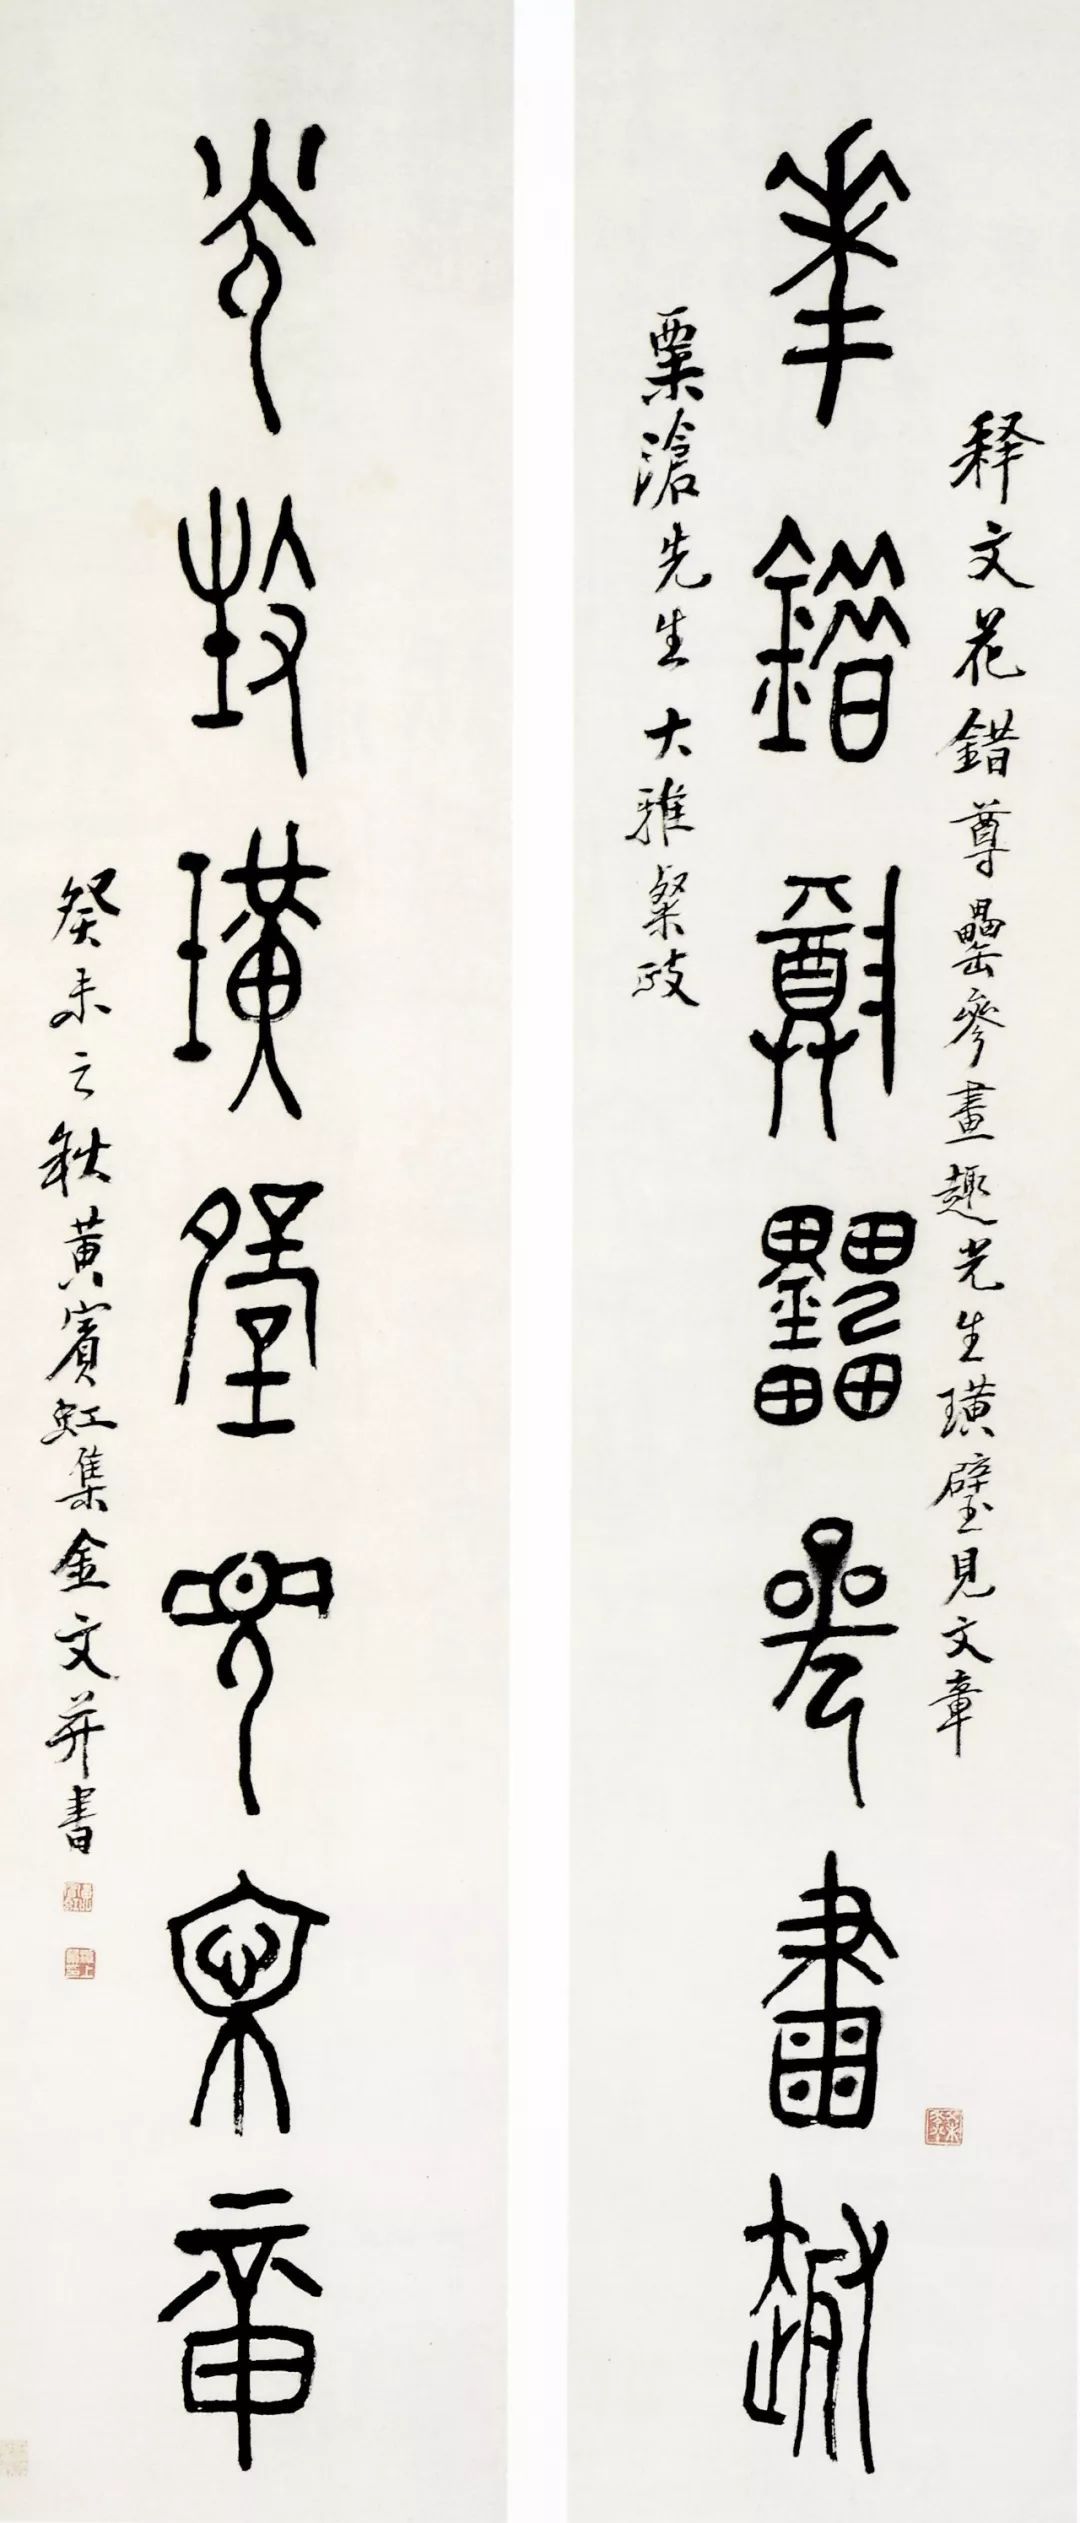 释文花錯尊罍參畫趣光生璜璧見文章
花錯尊罍參畫趣
栗滄先生大雅粲政
光生璜璧見文章
癸未之秋黃賓虹集金文并書